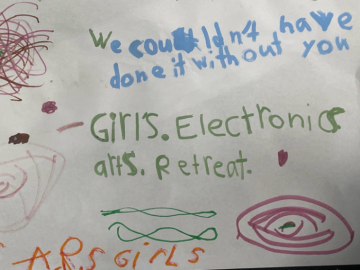 We couldn4 have
done it without you
- Girls. Electronic
arts. Retreat.
A.R.S GirLS